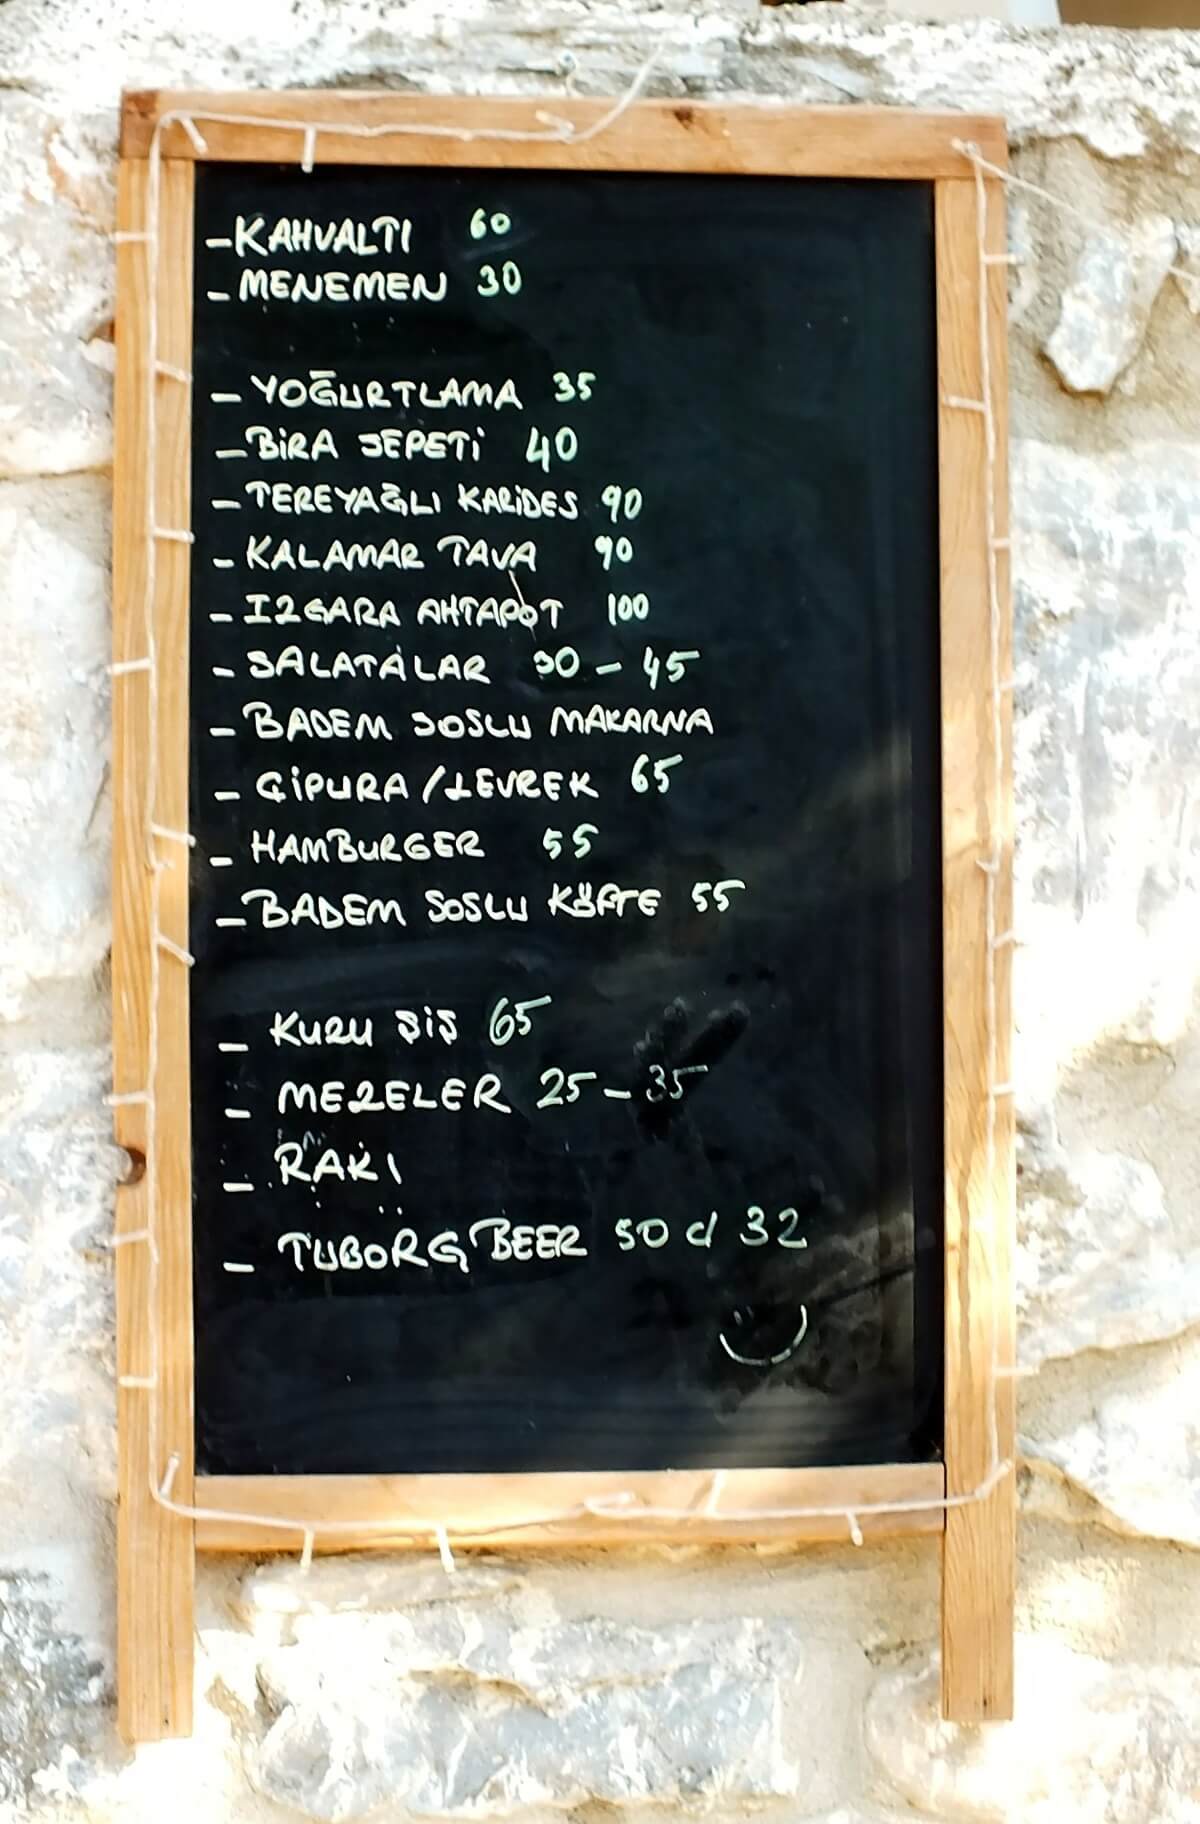 - KAHVALTI 60
- MENEMEN 30
- YOĞURTLAMA 35
- BİRA SEPETİ 40
- TEREYAĞLI KARİDES 90
- KALAMAR TAVA 90
- IZGARA AHTAPOT 100
- SALATALAR 30 - 45
- BADEM SOSLU MAKARNA
- ÇİPURA / LEVREK 65
- HAMBURGER 55
- BADEM SOSLU KÖFTE 55
- KUZU ŞİŞ 65
- MEZELER 25 - 35
- RAKI
- TUBORG BEER 50 cl 32